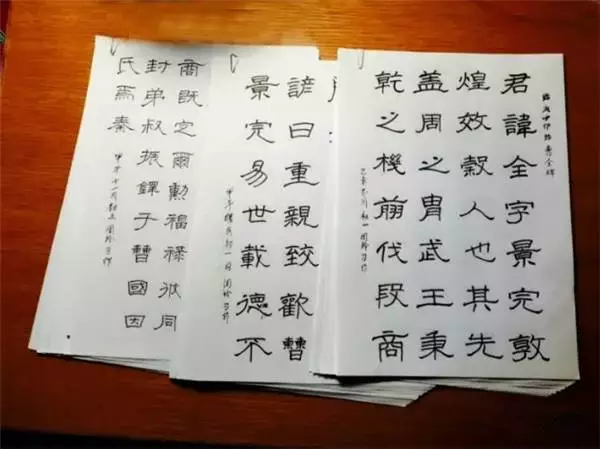 君諱全字景完敦
煌效穀人也其先
盖周之胄武王秉
乾之機前伐殷商
諺曰重親致歡曹
景完易世載德不
商既定爾勳福祿攸同
封弟叔振鐸于曹國因
氏焉秦
甲午十一月